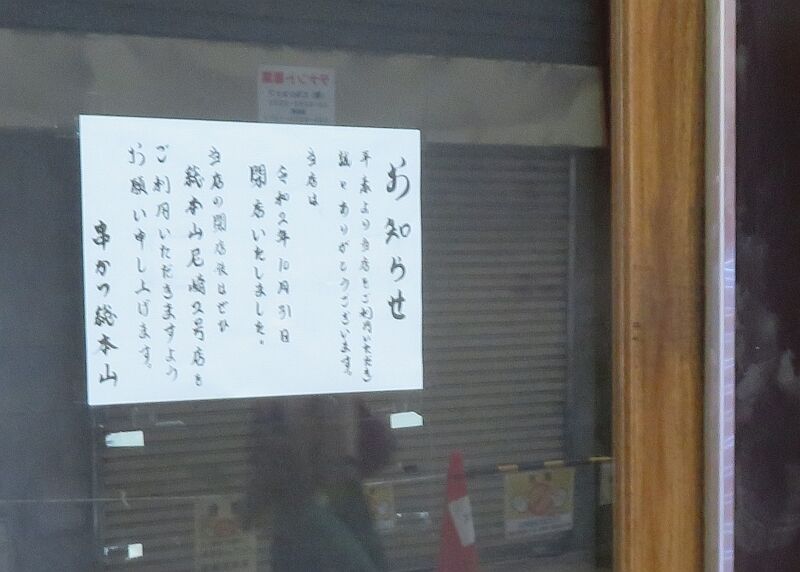 お知らせ
平素より当店をご利用いただき
誠にありがとうございます。
当店は
令和2年10月31日
閉店いたしました。
当店の閉店後はぜひ
総本山尼崎2号店を
ご利用いただきますよう
お願い申し上げます。
串かつ総本山
テナント募集